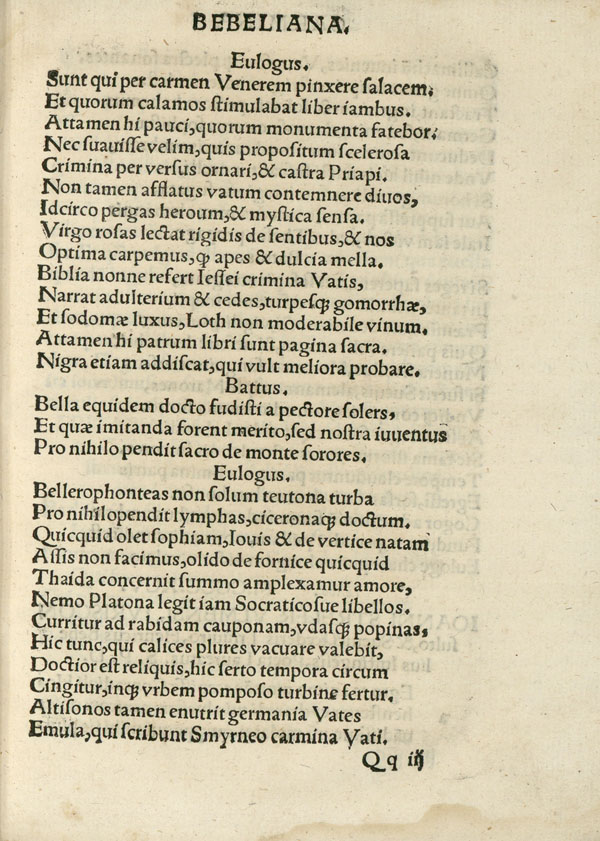 BEBELIANA.
Eulogus.
Sunt qui per carmen Venerem pinxere salacem,
Et quorum calamos stimulabat liber iambus.
Attamen hi pauci, quorum monumenta fatebor:
Nec suauisse velim, quis propositum scelerosa
Crimina per versus ornari, & castra Priapi.
Non tamen afflatus vatum contemnere diuos,
Idcirco pergas heroum, & mystica sensa.
Virgo rosas lectat rigidis de sentibus, & nos
Optima carpemus, ꝙ apes & dulcia mella.
Biblia nonne refert Iessei crimina Vatis,
Narrat adulterium & cedes, turpesqꝫ gomorrhæ,
Et sodomæ luxus, Loth non moderabile vinum.
Attamen hi patrum libri sunt pagina sacra.
Nigra etiam addiscat, qui vult meliora probare.
Battus.
Bella equidem docto fudisti a pectore solers,
Et quæ imitanda forent merito, sed nostra iuuentus
Pro nihilo pendit sacro de monte sorores.
Eulogus.
Bellerophonteas non solum teutona turba
Pro nihilopendit lymphas, ciceronaqꝫ doctum.
Quicquid olet sophiam, Iouis & de vertice natam
Assis non facimus, olido de fornice quicquid
Thaida concernit summo amplexamur amore,
Nemo Platona legit iam Socraticosue libellos.
Curritur ad rabidam cauponam, vdasqꝫ popinas,
Hic tunc, qui calices plures vacuare valebit,
Doctior est reliquis, hic serto tempora circum
Cingitur, inqꝫ vrbem pomposo turbine fertur.
Altisonos tamen enutrit germania Vates
Emula, qui scribunt Smyrneo carmina Vati.
Qq iij